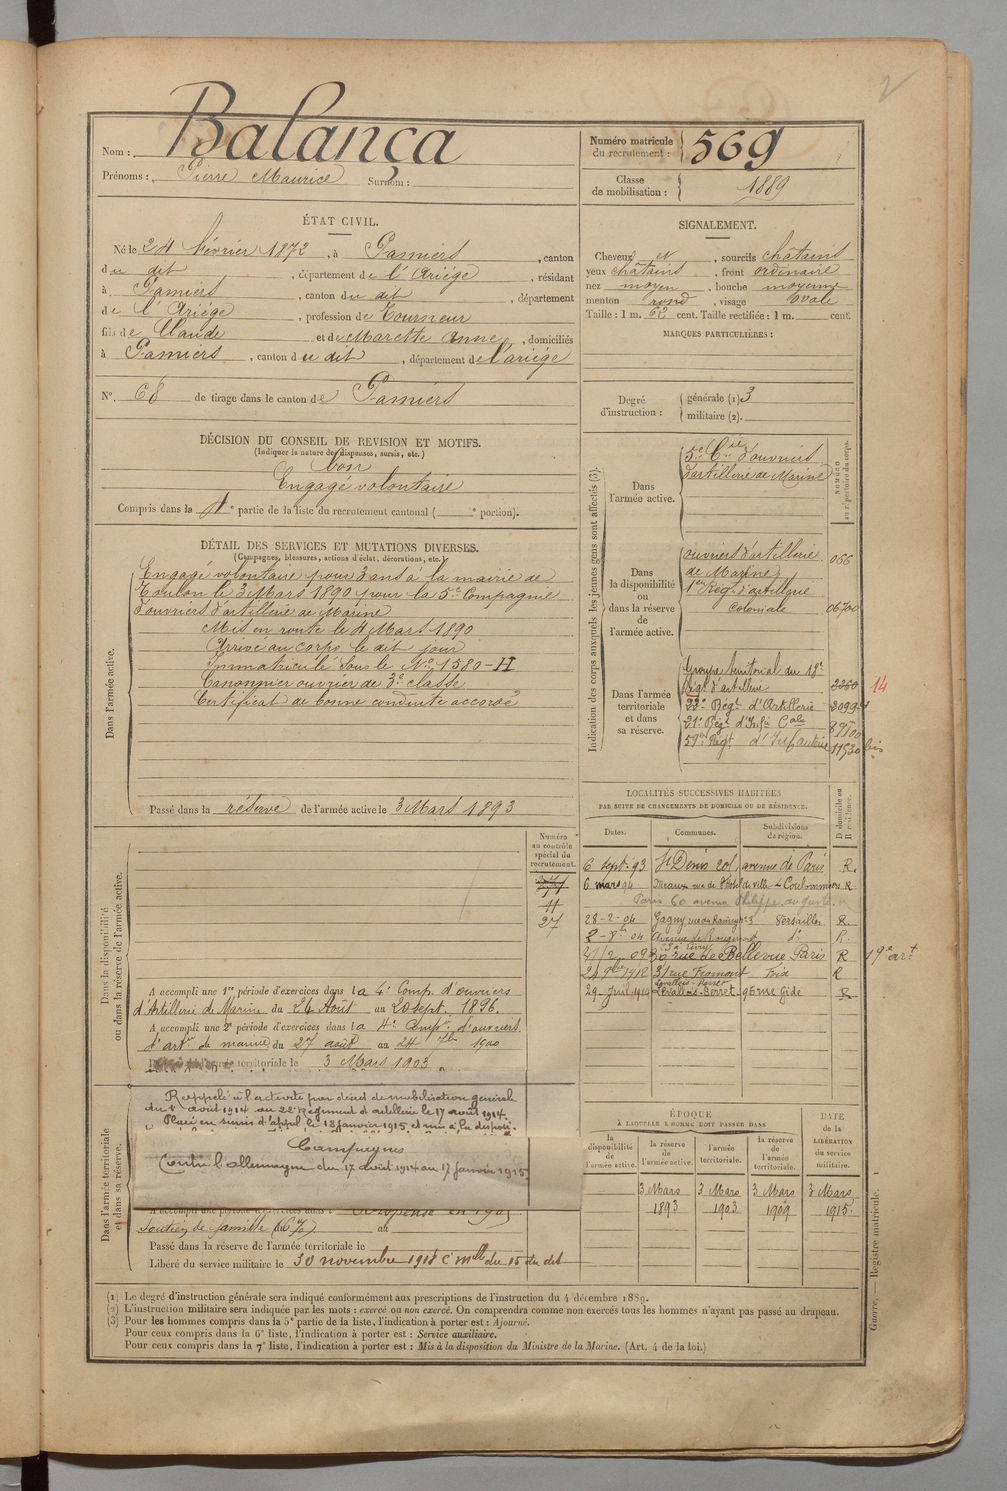 2
Nom : Balança
Prénoms : Pierre Maurice Surnom :
Numéro matricule du recrutement : 569
Classe de mobilisation : 1889
ÉTAT CIVIL.
Né le 24 février 1872, à Pamiers, canton
du dit, département de l'Ariège, résidant
à Pamiers, canton du dit, département
de l'Ariège, profession de Tourneur
fils de Claude et de Marette Anne, domiciliés
à Pamiers, canton du dit, département de l'ariège
N° 68 de tirage dans le canton de Pamiers
SIGNALEMENT.
Cheveux et, sourcils châtains
yeux châtains, front ordinaire
nez moyen, bouche moyenne
menton rond, visage ovale
Taille : 1 m. 62 cent. Taille rectifiée : 1 m. cent.
MARQUES PARTICULIÈRES :
Degré d'instruction : générale (1) 3
militaire (2).
DÉCISION DU CONSEIL DE REVISION ET MOTIFS.
(Indiquer la nature des dispenses, sursis, etc.)
bon
Engagé volontaire
Compris dans la 4e partie de la liste du recrutement cantonal ( e portion).
DÉTAIL DES SERVICES ET MUTATIONS DIVERSES.
(Campagnes, blessures, actions d'éclat, décorations, etc.)
Dans l'armée active.
Engagé volontaire pour 3 ans à la mairie de
Toulon le 3 Mars 1890 pour la 5e Compagnie
d'ouvriers d'artillerie de Marine
Mis en route le 4 Mars 1890
Arrivé au corps le dit jour
Immatriculé sous le No 1580-H
Canonnier ouvrier de 3e classe
Certificat de bonne conduite accordé
Passé dans la réserve de l'armée active le 3 Mars 1893
Indication des corps auxquels les jeunes gens sont affectés (3).
NUMÉRO au répertoire du corps.
Dans l'armée active.
5e Cie d'ouvriers
d'artillerie de Marine
Dans la disponibilité ou dans la réserve de l'armée active.
ouvriers d'artillerie 066
de Marine
1er Régt d'artillerie
coloniale 06700
Dans l'armée territoriale et dans sa réserve.
Groupe territorial du 18e
Régt d'artillerie 14
Régt d'Artillerie
21e Régt d'Infie Cale
59e Régt d'Infanterie 11530 bis
LOCALITÉS SUCCESSIVES HABITÉES
PAR SUITE DE CHANGEMENTS DE DOMICILE OU DE RÉSIDENCE.
Dates. Communes. Subdivisions de région. D domicile ou R résidence.
6 Sept. 93 St Denis 201, avenue de Paris R.
6 mars 94 Meaux rue de l'hotel de ville 4 Coulommiers R
Paris 60 avenue Philippe Auguste
28-2-04 Gagny rue du Raincy no 3 Versailles R.
Avenue de Rougemont do R.
rue de Bellevue Paris R 19e art
1912 31 rue Fromont Foix R
29 Juil 1914 Levallois-Perret 96 rue Gide R
Dans la disponibilité ou dans la réserve de l'armée active.
Numéro au contrôle spécial du recrutement.
11
27
A accompli une 1re période d'exercices dans la 4e Comp. d'ouvriers
d'Artillerie de Marine du 24 Août au 20 sept. 1896.
A accompli une 2e période d'exercices dans la 4e Compie d'ouvriers
d'artie de marine du 27 août au 24 7bre 1900
Passé dans l'armée territoriale le 3 Mars 1903
Dans l'armée territoriale et dans sa réserve.
Rappelé à l'activité par décret de mobilisation générale
du 1 août 1914 au 22e Régiment d'artillerie le 17 août 1914.
Placé en sursis d'appel le 18 janvier 1915 et mis à la dispoon
Campagnes
Contre l'allemagne du 17 août 1914 au 17 janvier 1915
A accompli une période d'exercices dans l Dispensé en 1905
soutien de famille au
Passé dans la réserve de l'armée territoriale le
Libéré du service militaire le 30 novembre 1918 Cre mlle du 15 du dit
ÉPOQUE
À LAQUELLE L'HOMME DOIT PASSER DANS
la disponibilité de l'armée active. la réserve de l'armée active. l'armée territoriale. la réserve de l'armée territoriale.
DATE de la LIBÉRATION du service militaire.
3 Mars 1893 3 Mars 1903 3 Mars 1909 3 Mars 1915.
(1) Le degré d'instruction générale sera indiqué conformément aux prescriptions de l'instruction du 4 décembre 1889.
(2) L'instruction militaire sera indiquée par les mots : exercé ou non exercé. On comprendra comme non exercés tous les hommes n'ayant pas passé au drapeau.
(3) Pour les hommes compris dans la 5e partie de la liste, l'indication à porter est : Ajourné.
Pour ceux compris dans la 6e liste, l'indication à porter est : Service auxiliaire.
Pour ceux compris dans la 7e liste, l'indication à porter est : Mis à la disposition du Ministre de la Marine. (Art. 4 de la loi.)
Guerre. — Registre matricule. 1